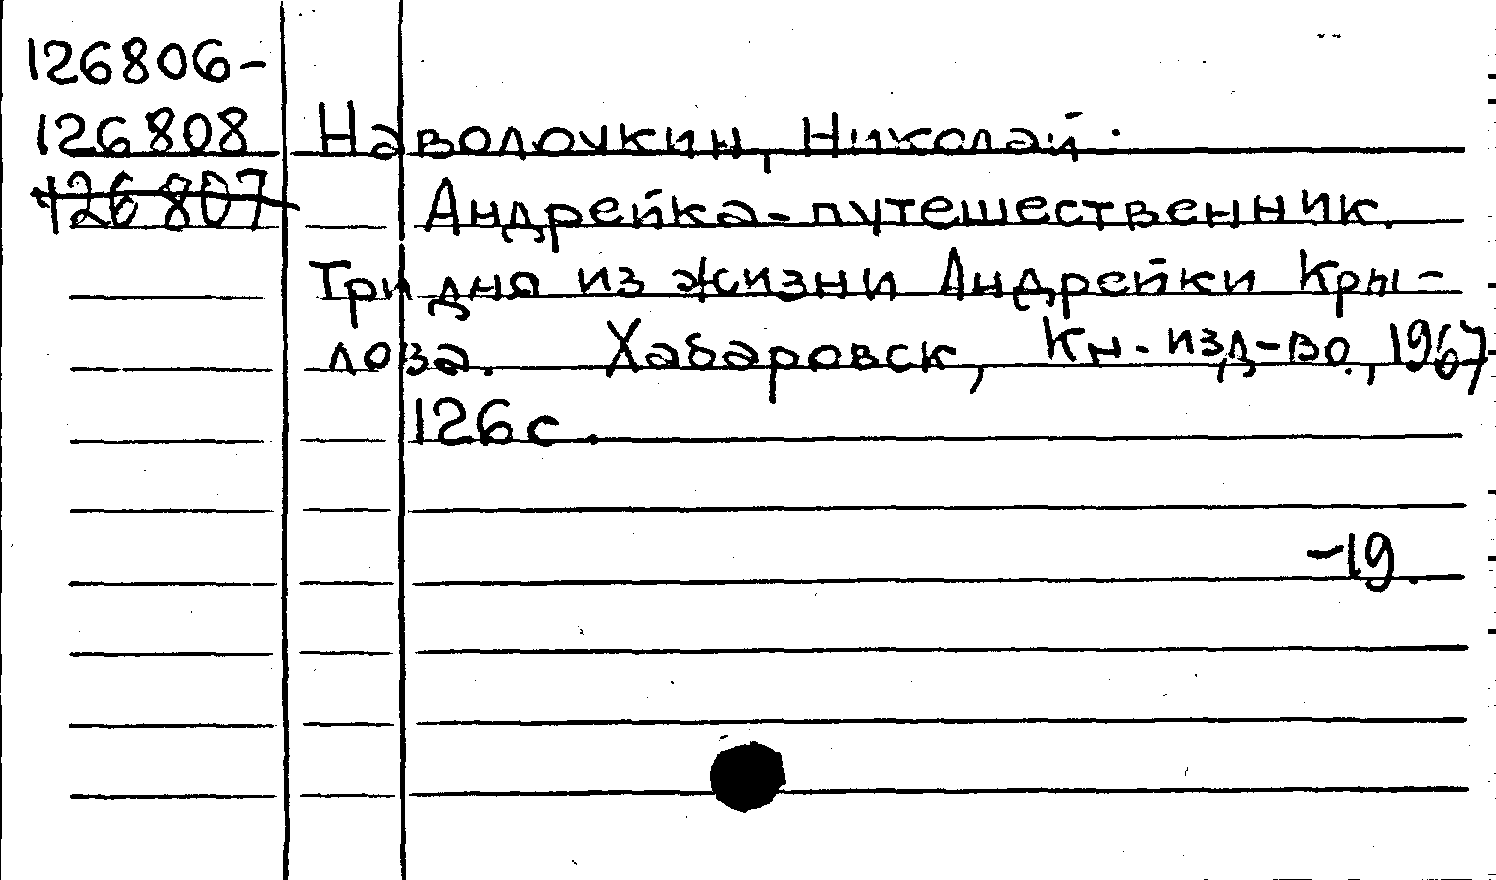 126806-
126808 Наволочкин, Николай.
126807 Андрейка-путешественник.
Три дня из жизни Андрейки Кры-
лова. Хабаровск, Кн. изд-во., 1967
126 с.
-19.